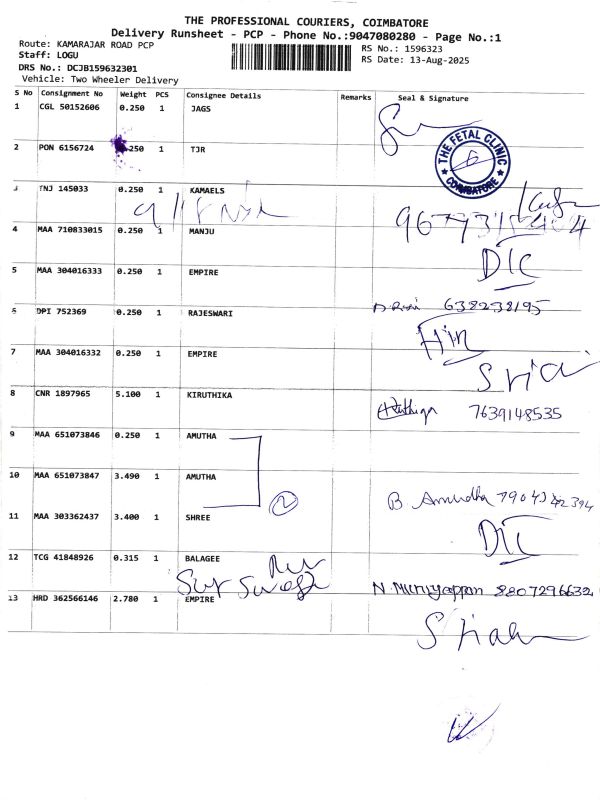 THE PROFESSIONAL COURIERS, COIMBATORE
Delivery Runsheet - PCP - Phone No.:9047080280 - Page No.:1
Route: KAMARAJAR ROAD PCP
RS No.: 1596323
Staff: LOGU
RS Date: 13-Aug-2025
DRS No.: DCJB159632301
Vehicle: Two Wheeler Delivery
S No Consignment No Weight PCS Consignee Details Remarks Seal & Signature
1 CGL 50152606 0.250 1 JAGS
THE FETAL CLINIC
COIMBATORE
2 PON 6156724 .250 1 TJR
TNJ 145033 0.250 1 KAMAELS
4 MAA 710833015 0.250 1 MANJU
D/C
5 MAA 304016333 0.250 1 EMPIRE
6 DPI 752369 0.250 1 RAJESWARI 638238195
7 MAA 304016332 0.250 1 EMPIRE
8 CNR 1897965 5.100 1 KIRUTHIKA
7639148535
9 MAA 651073846 0.250 1 AMUTHA
10 MAA 651073847 3.490 1 AMUTHA
2
B Amudha
11 MAA 303362437 3.400 1 SHREE
D/C
12 TCG 41848926 0.315 1 BALAGEE
N. Muruyappan 8807296632
13 HRD 362566146 2.780 1 EMPIRE